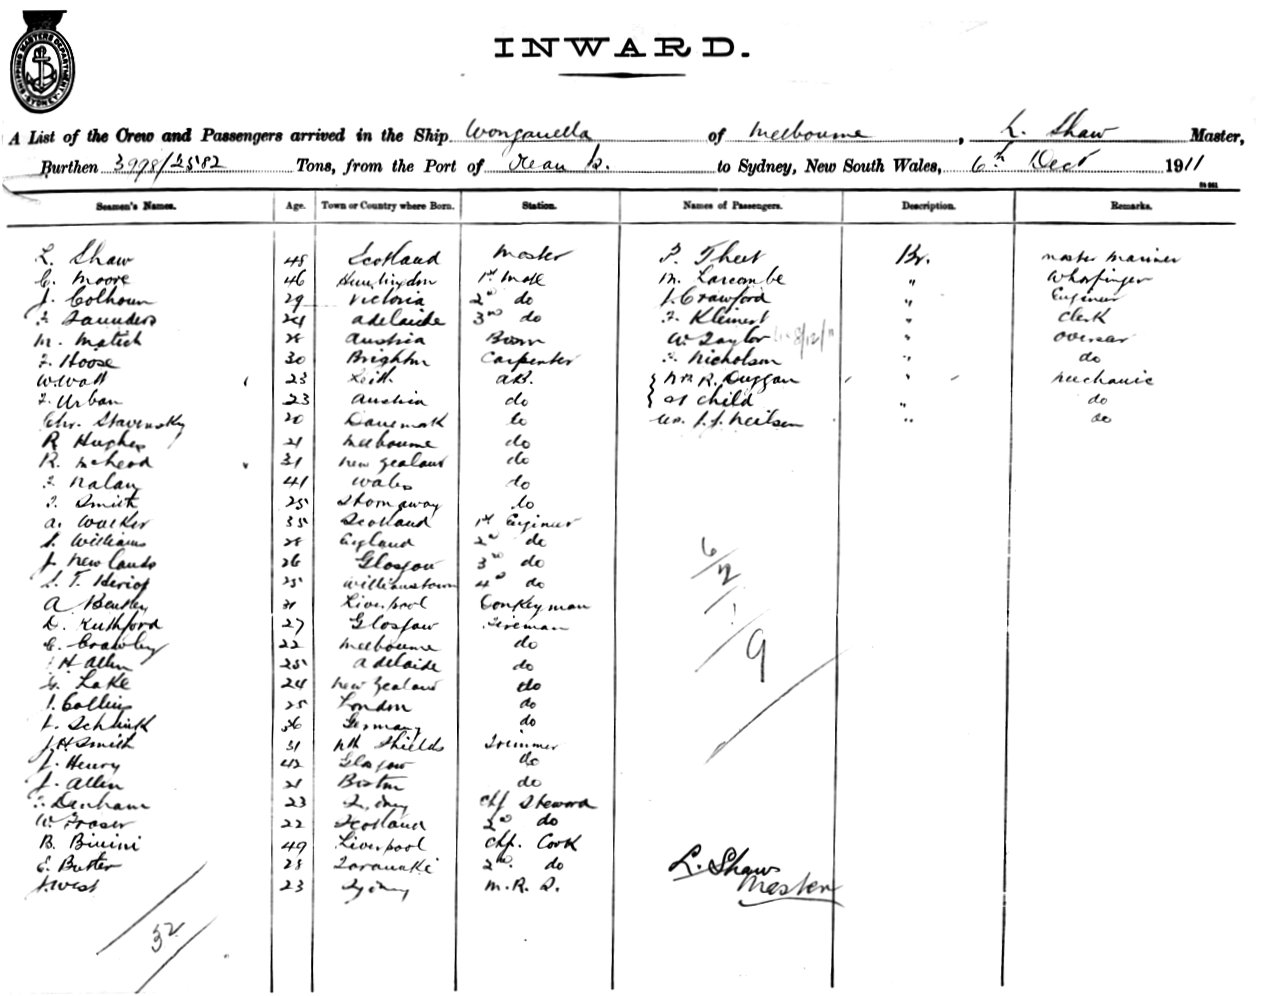 SHIPPING MASTERS DEPARTMENT SYDNEY
INWARD.
A List of the Crew and Passengers arrived in the Ship Wonganella of Melbourne, L. Shaw Master,
Burthen 3998/2582 Tons, from the Port of Ocean Is. to Sydney, New South Wales, 6th Dect 1911
Seamen's Names. Age. Town or Country where Born. Station. Names of Passengers. Description. Remarks.
L. Shaw 48 Scotland Master F. Theet Br. Master Mariner
C. Moore 46 Huntingdon 1st Mate M. Larcombe " Wharfinger
J. Colhoun 29 Victoria 2nd do J. Crawford Engineer
F. Saunders 24 Adelaide 3rd do F. Kleinert " Clerk
M. Matich 28 Austria Bosn W Taylor 8/12/11 " Overseer
F. Hoose 30 Brighton Carpenter F. Nicholson " do
W Watt 23 Leith AB. Mrs R. Duggan " Mechanic
F. Urban 23 Austria do & child " do
Chr. Stavensky 20 Danemark do J. J. Neilsen " do
R Hughes 21 Melbourne do
R. McLeod 31 New Zealand do
Nalan 41 Wales do
Smith 25 Stornaway do
A. Walker 35 Scotland 1st Engineer
S. Williams 28 England 2nd do
J. Newlands 26 Glasgow 3rd do
S. T. Heriot 25 Williamstown 4th do
A Bentley 31 Liverpool Donkeyman
D. Ruthford 27 Glasgow Fireman
C. Crawley 22 Melbourne do
H Allen 25 Adelaide do
G. Lake 24 New Zealand do
J. Collins 25 London do
L. Schlink 36 Germany do
J. H Smith 31 Nth Shields Trimmer
J. Henry 42 Glasgow do
J. Allen 21 Boston do
Denham 23 Sydney Chf Steward
W. Fraser 22 Scotland 2nd do
B. Binini 49 Liverpool Chf. Cook
E. Butter 28 Taranaki 2nd. do
J. West 23 Sydney M. R. S.
6/2/1/9
L. Shaw
Master
32